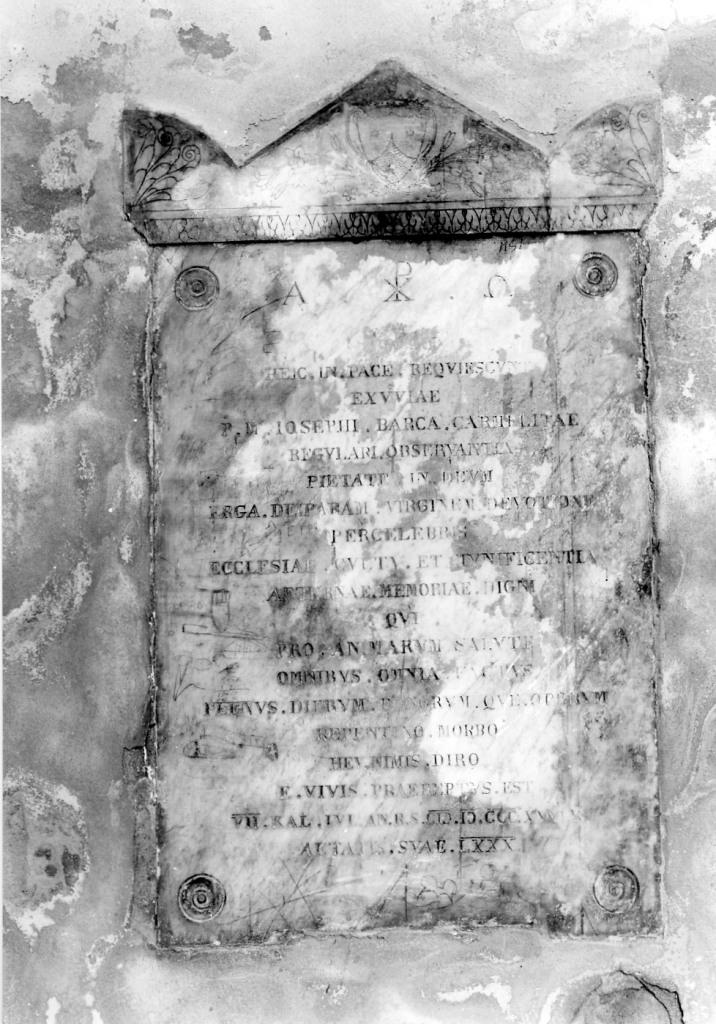 A ☧ Ω
HEIC . IN . PACE . REQVIESCVNT
EXVVIAE
P . M . IOSEPHI . BARCA . CARMELITAE
REGVLARI . OBSERVANTIA
PIETATE . IN . DEVM
ERGA . DEIPARAM . VIRGINEM . DEVOTIONE
PERCELEBRIS
ECCLESIAE . CVLTV . ET . MVNIFICENTIA
AETERNAE . MEMORIAE . DIGNI
QVI
PRO . ANIMARVM . SALVTE
OMNIBVS . OMNIA . FACTVS
PLENVS . DIERVM . BONORVM . QVE . OPERVM
REPENTINO . MORBO
HEV . NIMIS . DIRO
E . VIVIS . PRAEREPTVS . EST
VII . KAL . IVL . AN . R . S .
AETATIS . SVAE . LXXX